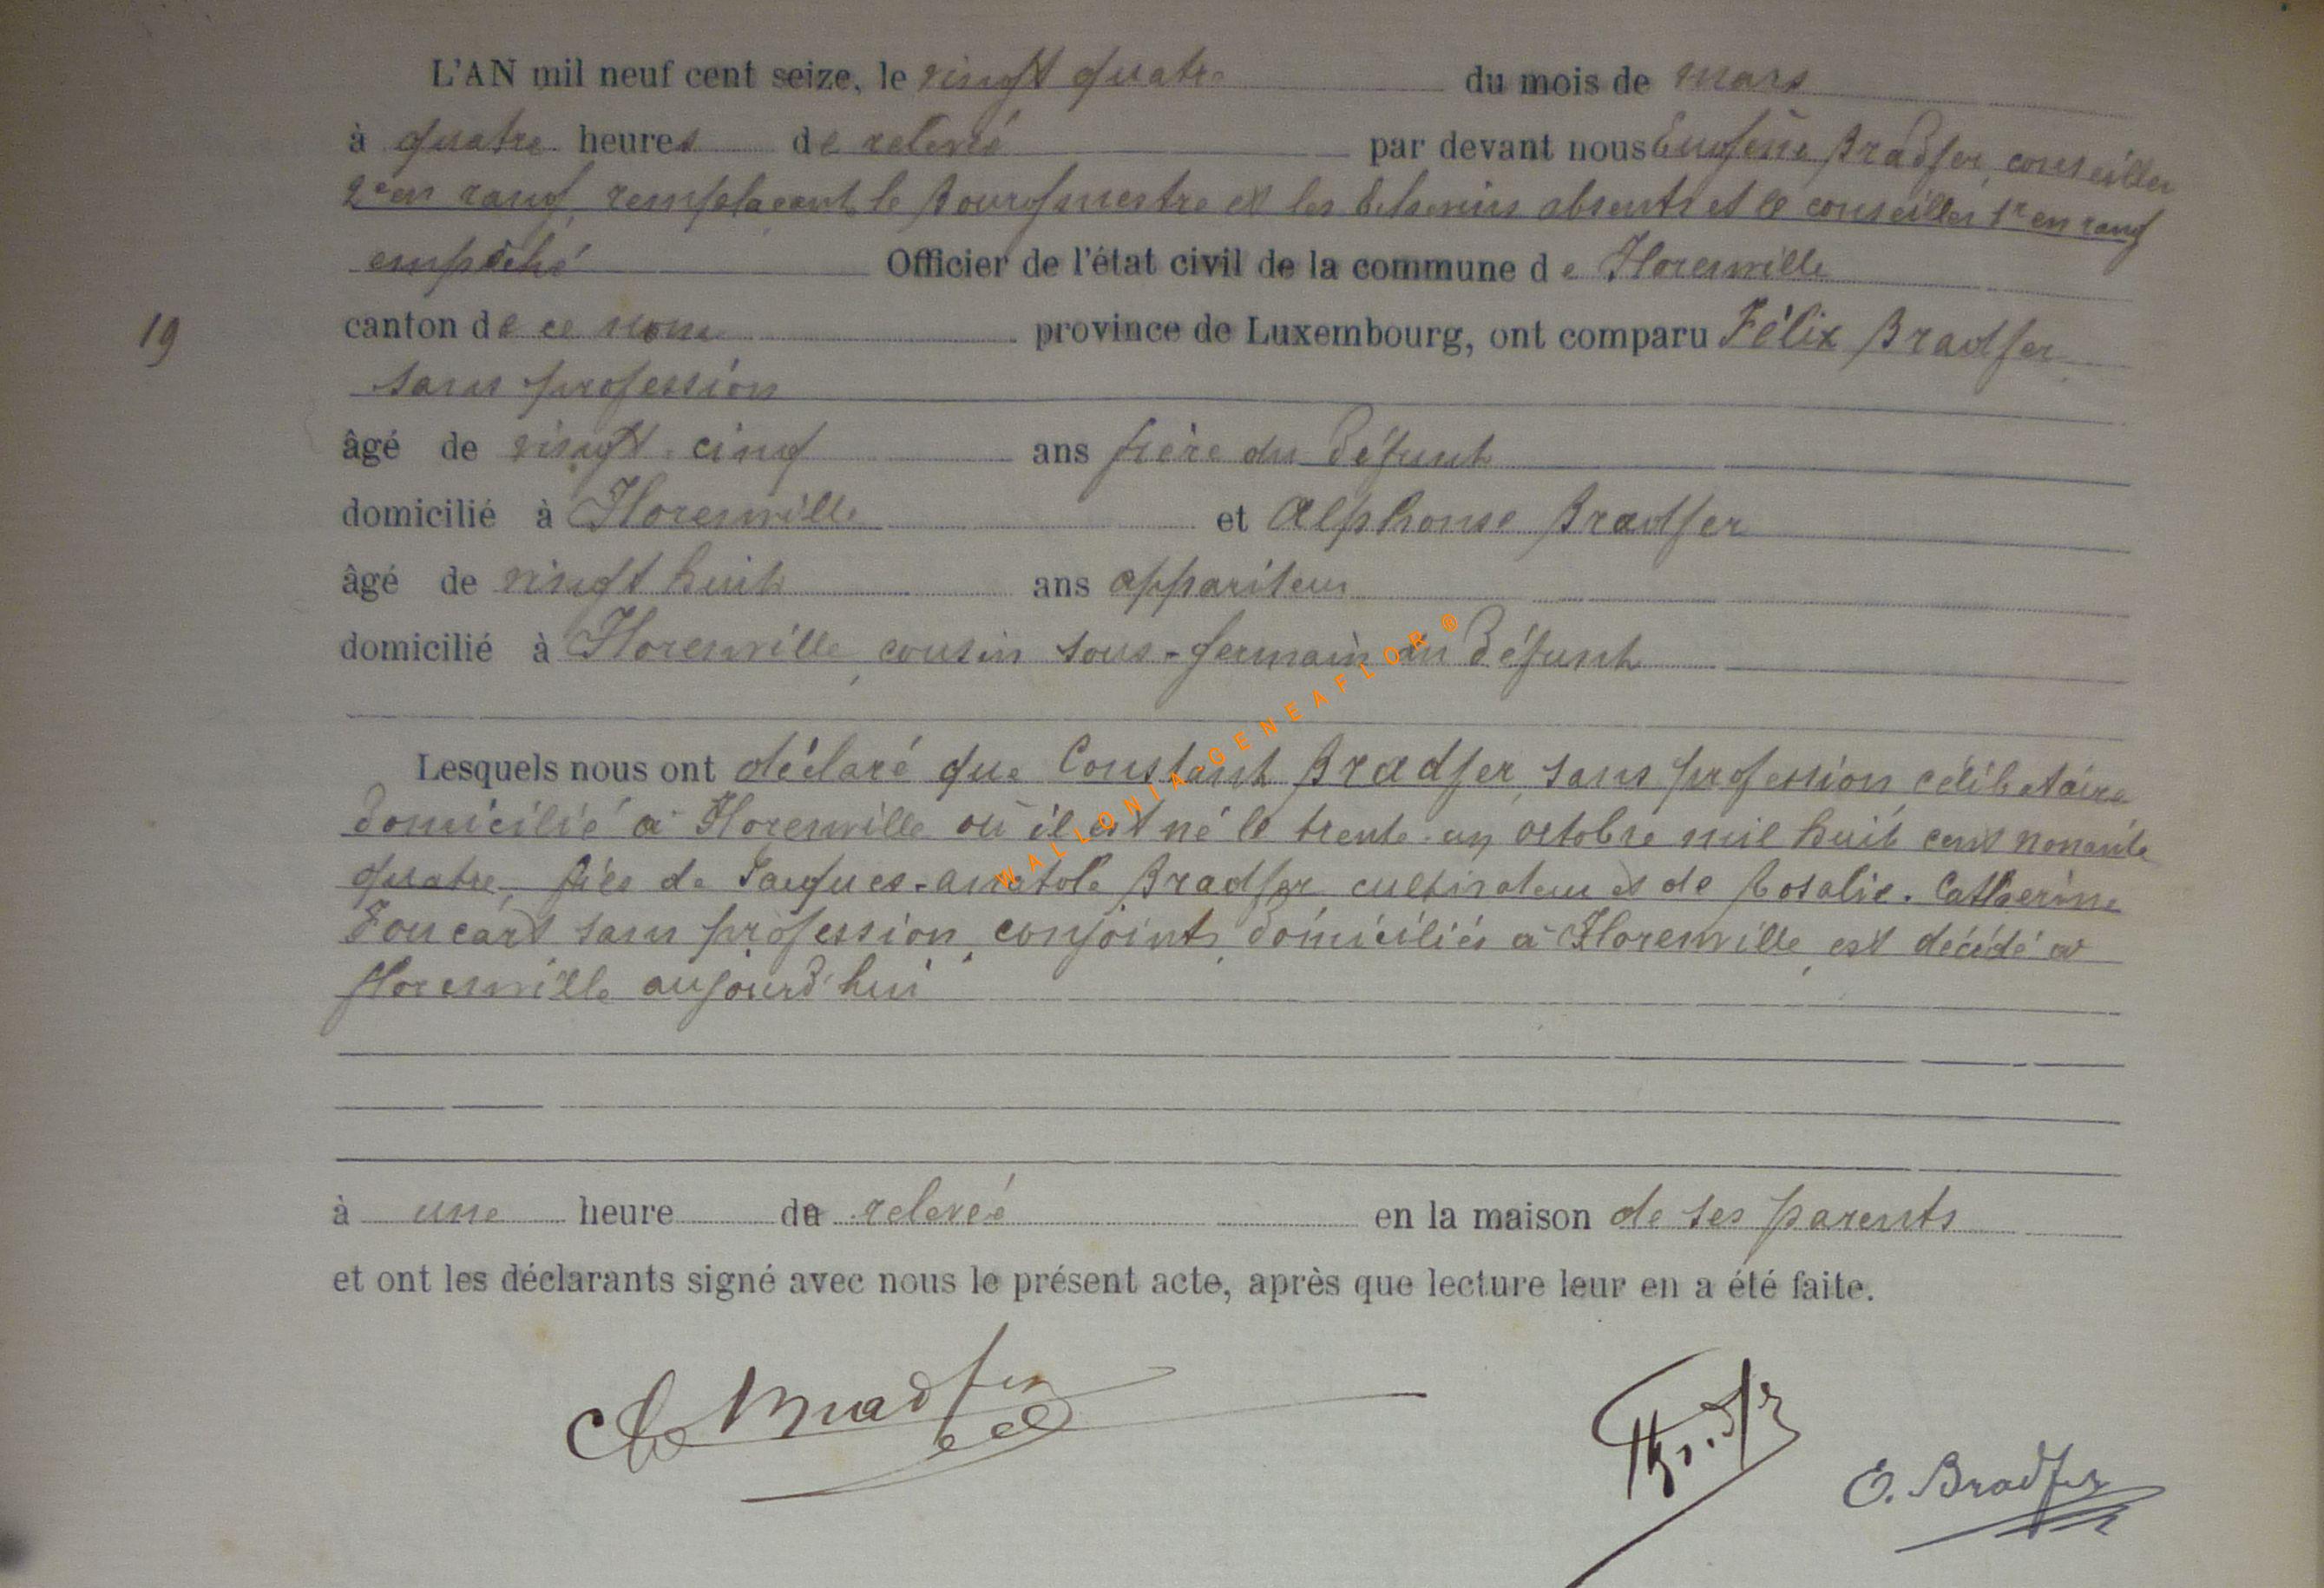 L'AN mil neuf cent seize, le vingt quatre du mois de mars
à quatre heures de relevée par devant nous Eugène Bradfer, conseiller
2e en rang, remplaçant le Bourgmestre et les Echevins absents et le conseiller 1r en rang
empêché Officier de l'état civil de la commune de Florenville
19 canton de ce nom province de Luxembourg, ont comparu Félix Bradfer
sans profession
âgé de vingt-cinq ans frère du défunt
domicilié à Florenville et Alphonse Bradfer
âgé de vingt huit ans appariteur
domicilié à Florenville, cousin sous-germain du défunt
WALLONIA-GENEAFLOR ®
Lesquels nous ont déclaré que Constant Bradfer, sans profession célibataire
domicilié à Florenville où il est né le trente-un octobre mil huit cent nonante
quatre, fils de Jacques-Anatole Bradfer, cultivateur et de Rosalie-Catherine
Foucart sans profession, conjoints, domiciliés à Florenville, est décédé à
Florenville aujourd'hui
à une heure de relevée en la maison de ses parents
et ont les déclarants signé avec nous le présent acte, après que lecture leur en a été faite.
Bradfer
E. Bradfer